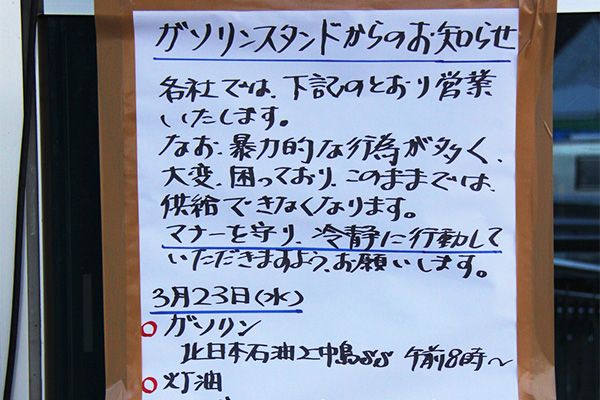 ガソリンスタンドからのお知らせ
各社では、下記のとおり営業
いたします。
なお、暴力的な行為が多く、
大変、困っており、このままでは、
供給できなくなります。
マナーを守り、冷静に行動して
いただきますよう、お願いします。
3月23日(水)
○ ガソリン
北日本石油 中島SS 午前8時～
○ 灯油